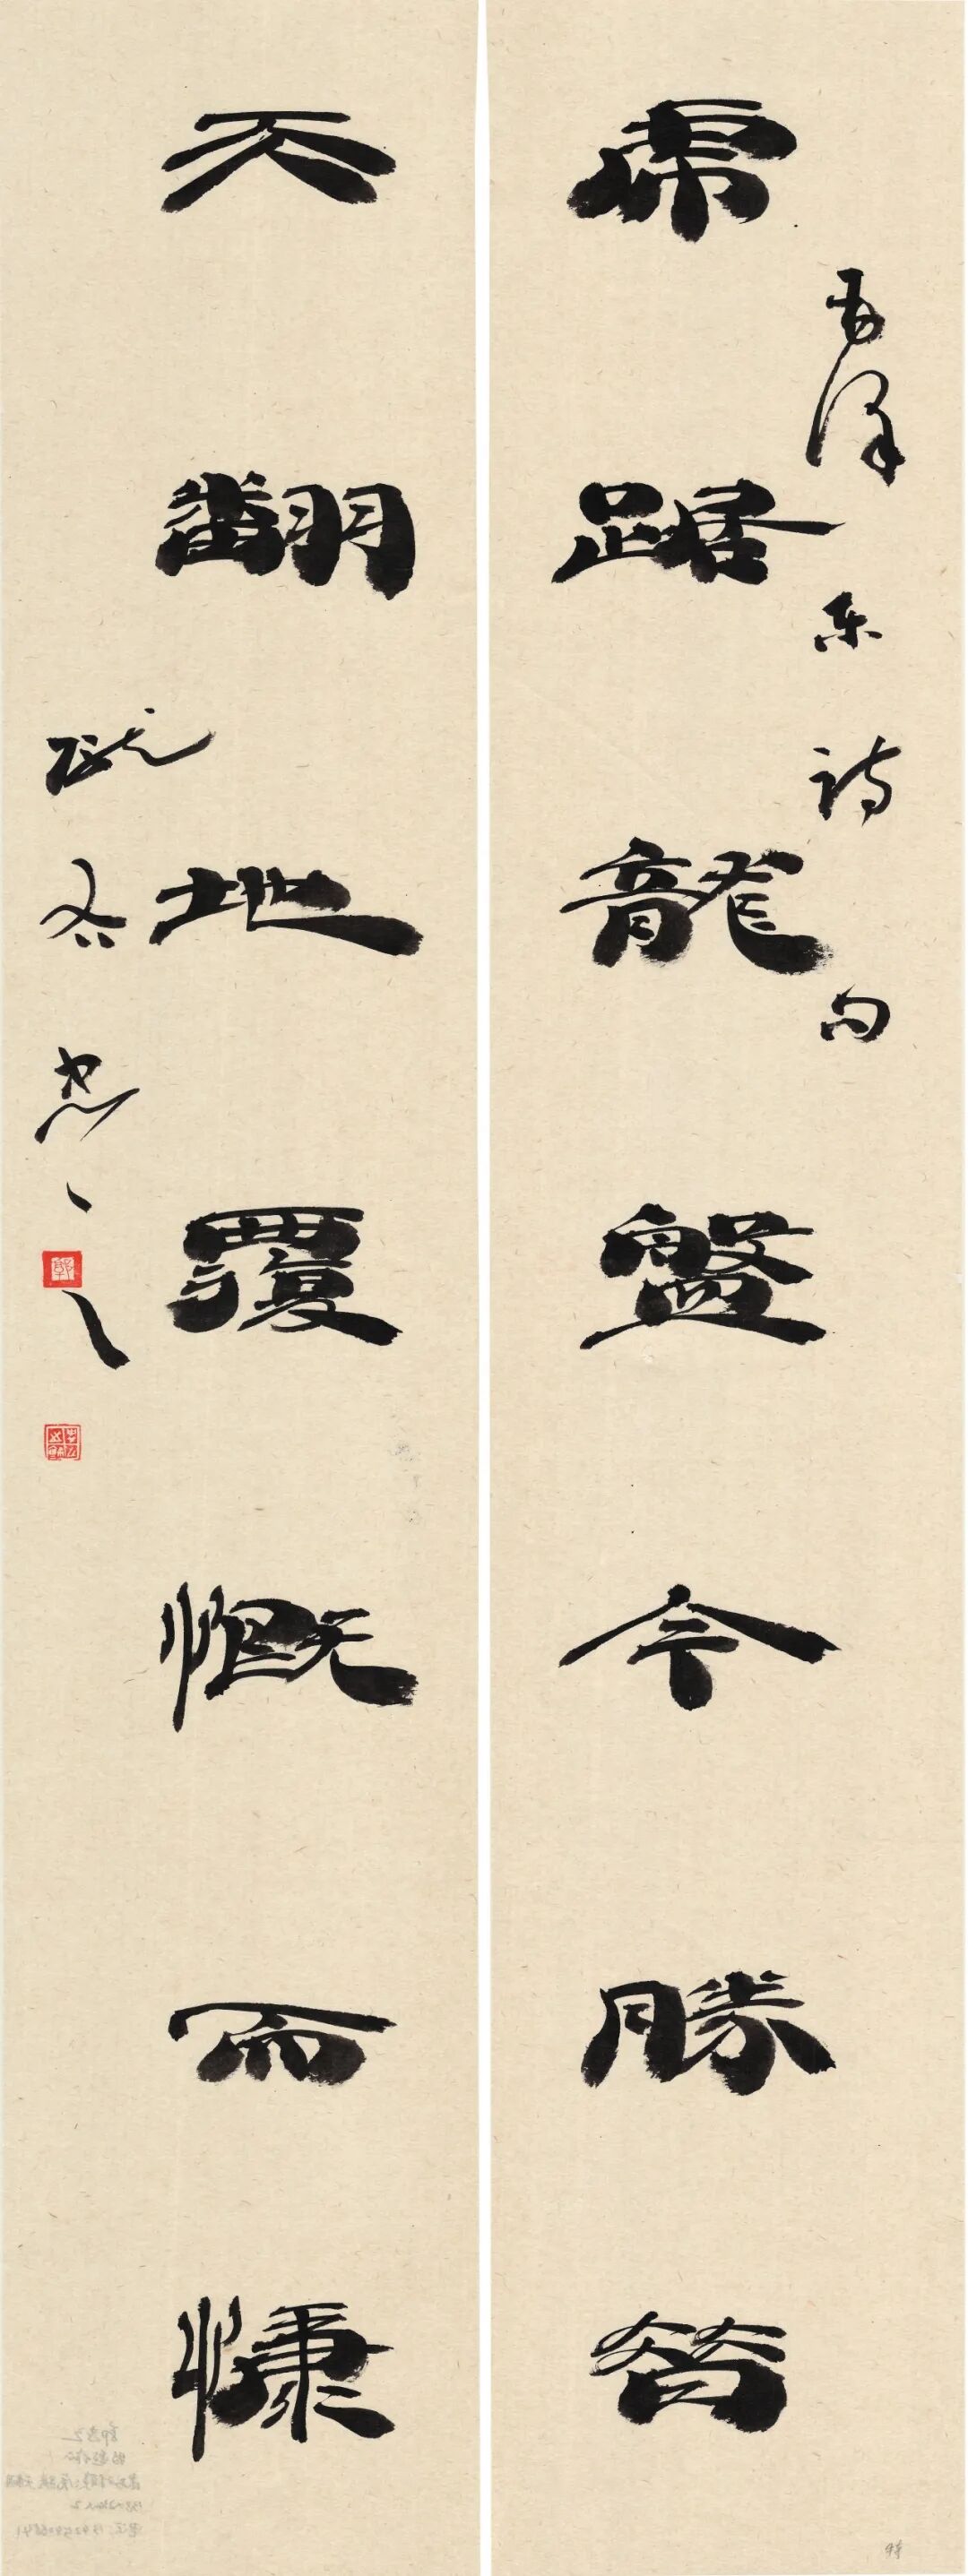 毛澤東詩句
虎踞龍盤今勝昔
天翻地覆慨而慷
冬忠之